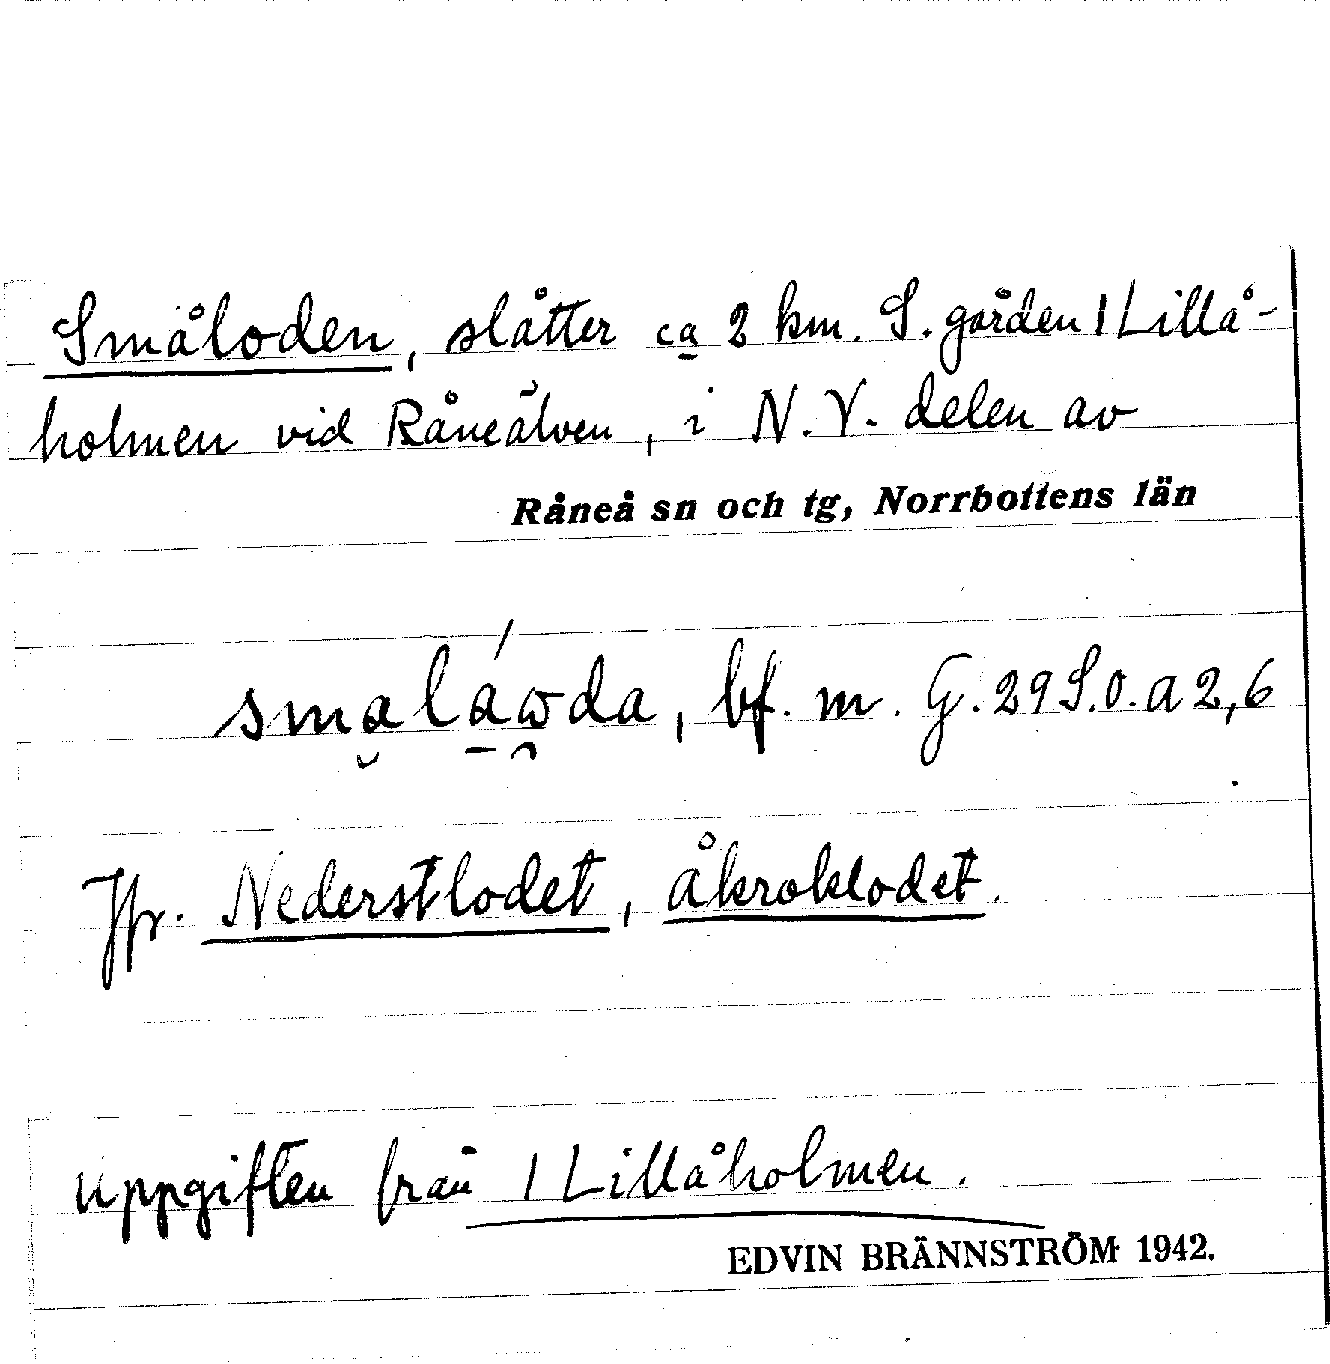 Småloden, slåtter ca 2 km. S. gården 1 Lillå-
holmen vid Råneälven, i N.V. delen av
Råneå sn och tg, Norrbottens län
smalåωda, bf. m. G. 29 S.O. a 2,6
Jfr. Nederstlodet, Åkroklodet.
Uppgiften från 1 Lillåholmen.
EDVIN BRÄNNSTRÖM 1942.